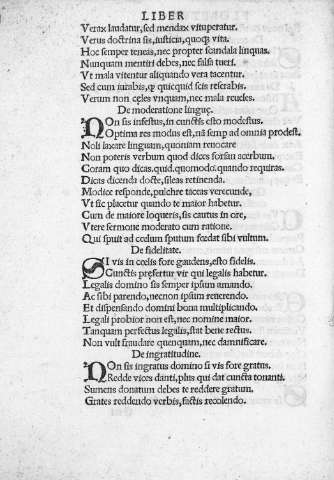 LIBER
Verax laudatur, sed mendax vituperatur.
Verus doctrina sis, iusticia, quoqȝ vita.
Hoc semper teneas, nec propter scandala linquas.
Nunquam mentiri debes, nec falsa tueri.
Vt mala vitentur aliquando vera tacentur.
Sed cum iurabis, qȝ quicquid scis reserabis.
Verum non celes vnquam, nec mala reueles.
De moderatione linguę.
NOn sis infestus, in cunctis esto modestus.
Optima res modus est, nã semp ad omnia prodest.
Noli laxare linguam, quoniam reuocare
Non poteris verbum quod dices forsan acerbum.
Coram quo dicas. quid. quomodo. quando requiras.
Dicas dicenda docte, sileas retinenda.
Modice responde, pulchre taceas verecunde,
Vt sic placetur quando te maior habetur.
Cum de maiore loqueris, sis cautus in ore,
Vtere sermone moderato cum ratione.
Qui spuit ad cœlum sputum fœdat sibi vultum.
De fidelitate.
SI vis in cœlis fore gaudens, esto fidelis.
Cunctis pręfertur vir qui legalis habetur.
Legalis domino sis semper ipsum amando.
Ac sibi parendo, necnon ipsum reuerendo.
Et dispensando domini bona multiplicando.
Legali probior non est, nec nomine maior.
Tanquam perfectus legalis, stat bene rectus.
Non vult fraudare quenquam, nec damnificare.
De ingratitudine.
NOn sis ingratus domino si vis fore gratus.
Redde vices danti, plus qui dat cuncta tonanti.
Sumens donatum debes te reddere gratum.
Grates reddendo verbis, factis recolendo.